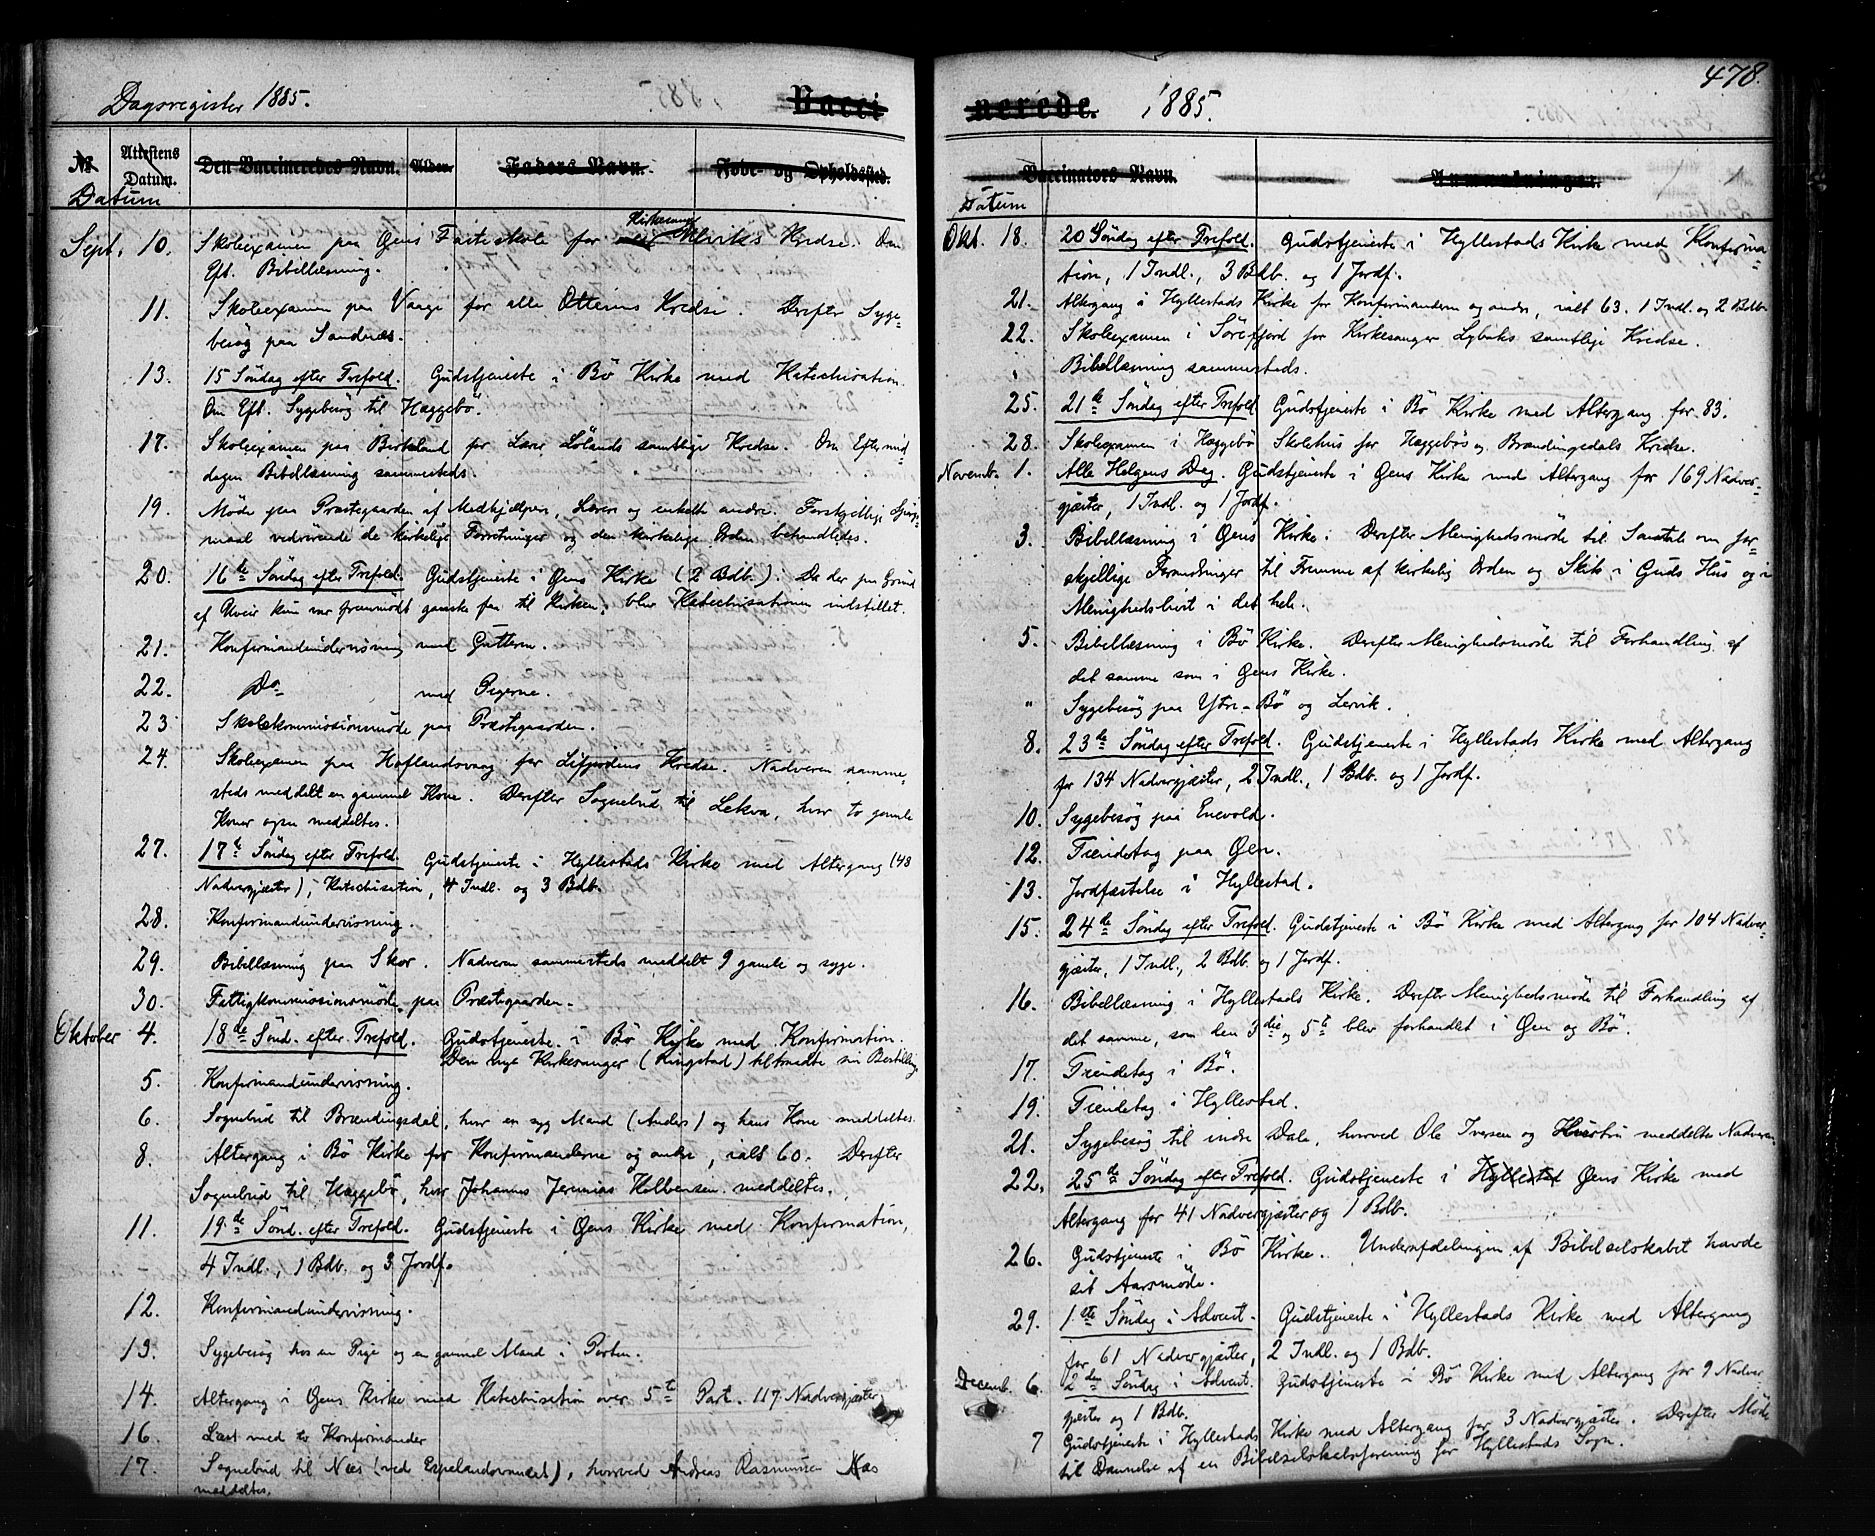 Dagsregister 1885.
Vacci
Attestens
№ Datum. Den Vaccineredes Navn. Alder. Faders Navn. Føde- og Opholdssted.
Datum
Sept. 10. Skoleexamen paa Øens Fasteskole for Kirkesanger Alviks Kredse. Om
Eft. Bibellæsning.
11. Skoleexamen paa Vaage for alle Otterens Kredse. Derefter Syge-
besøg paa Sandnæs.
13. 15 Søndag efter Trefold. Gudstjeneste i Bø Kirke med Katechisation.
Om Eft. Sygebesøg til Hæggebø.
17. Skoleexamen paa Birkeland for Lærer Lølands samtlige Kredse. Om Eftermid-
dagen Bibellæsning sammesteds.
19. Møde paa Præstegaarden af Medhjælpere, Lærere og enkelte andre. Forskjellige Spørgs-
maal vedrørende de kirkelige Forretninger og den kirkelige Orden behandledes.
20. 16de Søndag efter Trefold. Gudstjeneste i Øens Kirke (2 Bdb.). Da der paa Grund
af Uveir kun var fremmødt ganske faa til Kirken, blev Katechisationen indstillet.
21. Konfirmandundervisning med Gutterne.
22. Do med Pigerne.
23 Skolekommissionsmøde paa Præstegaarden.
24. Skoleexamen paa Høflandsvaag for Lifjordens Kredse. Nadveren samme-
steds meddelt en gammel Kone. Derefter Sognebud til Lekva, hvor to gamle
Koner ogsaa meddeltes.
27. 17de Søndag efter Trefold. Gudstjeneste i Hyllestads Kirke med Altergang (48
Nadvergjæster), Katechisation, 4 Indl. og 3 Bdb.
28. Konfirmandundervisning.
29. Bibellæsning paa Skor. Nadveren sammesteds meddelt 9 gamle og syge.
30. Fattigkommissionsmøde paa Præstegaarden.
Oktober 4. 18de Sønd. efter Trefold. Gudstjeneste i Bø Kirke med Konfirmation.
Den nye Kirkesanger (Ringstad) tiltraadte sin Bestilling
5. Konfirmandundervisning.
6. Sognebud til Brændingsdal, hvor en syg Mand (Anders) og hans Kone meddeltes.
8. Altergang i Bø Kirke for Konfirmanderne og andre, ialt 60. Derefter
Sognebud til Hæggebø, hvor Johannes Jeremias Kolbensen meddeltes.
11. 19de Sønd. efter Trefold. Gudstjeneste i Øens Kirke med Konfirmation,
4 Indl., 1 Bdb. og 3 Jordf.
12. Konfirmandundervisning.
13. Sygebesøg hos en Pige og en gammel Mand i Porten.
14. Altergang i Øens Kirke med Katechisation over 5te Part. 117 Nadvergjæster.
16. Læst med to Konfirmander
17. Sognebud til Næs (ved Espelandsvandet), hvorved Andreas Rasmussen Næs
meddeltes.
478.
nerede. 1885.
Vaccinators Navn. Anmærkninger.
Datum
Okt. 18. 20 Søndag efter Trefold. Gudstjeneste i Hyllestads Kirke med Konfirma-
tion, 1 Indl., 3 Bdb. og 1 Jordf.
21. Altergang i Hyllestads Kirke for Konfirmanderne og andre, ialt 63. 1 Indl. og 2 Bdb.
22. Skoleexamen i Sørefjord for Kirkesanger Lybaks samtlige Kredse.
Bibellæsning sammesteds.
25. 21de Søndag efter Trefold. Gudstjeneste i Bø Kirke med Altergang for 83.
28. Skoleexamen i Hæggebø Skolehus for Hæggebøs og Brændingsdals Kredse.
Novemb. 1. Alle Helgens Dag. Gudstjeneste i Øens Kirke med Altergang for 169 Nadver-
gjæster, 1 Indl. og 1 Jordf.
3. Bibellæsning i Øens Kirke. Derefter Menighedsmøde til Samtale om for-
skjellige Forandringer til Fremme af kirkelig Orden og Skik i Guds Hus og i
Menighedslivet i det hele.
5. Bibellæsning i Bø Kirke. Derefter Menighedsmøde til Forhandling af
det samme som i Øens Kirke.
" Sygebesøg paa Ytre-Bø og Lervik.
8. 23de Søndag efter Trefold. Gudstjeneste i Hyllestads Kirke med Altergang
for 134 Nadvergjæster, 2 Indl., 1 Bdb. og 1 Jordf.
10. Sygebesøg paa Enevold.
12. Tiendetag paa Øen.
13. Jordfæstelse i Hyllestad.
15. 24de Søndag efter Trefold. Gudstjeneste i Bø Kirke med Altergang for 104 Nadver-
gjæster, 1 Indl., 2 Bdb. og 1 Jordf.
16. Bibellæsning i Hyllestads Kirke. Derefter Menighedsmøde til Forhandling af
det samme, som den 3die og 5te blev forhandlet i Øen og Bø.
17. Tiendetag i Bø.
19. Tiendetag i Hyllestad.
21. Sygebesøg til indre Dale, hvorved Ole Iversen og Hustru meddeltes Nadveren
22. 25de Søndag efter Trefold. Gudstjeneste i Hyllestad Øens Kirke med
Altergang for 41 Nadvergjæster og 1 Bdb.
26. Gudstjeneste i Bø Kirke. Underafdelingen af Bibelselskabet havde
sit Aarsmøde.
29. 1ste Søndag i Advent. Gudstjeneste i Hyllestads Kirke med Altergang
for 61 Nadvergjæster, 2 Indl. og 1 Bdb.
Decemb. 6. 2den Søndag i Advent. Gudstjeneste i Bø Kirke med Altergang for 9 Nadver
gjæster og 1 Bdb.
7 Gudstjeneste i Hyllestads Kirke med Altergang for 3 Nadvergjæster. Derefter Møde
til Dannelse af en Bibelselskabsforening for Hyllestads Sogn.